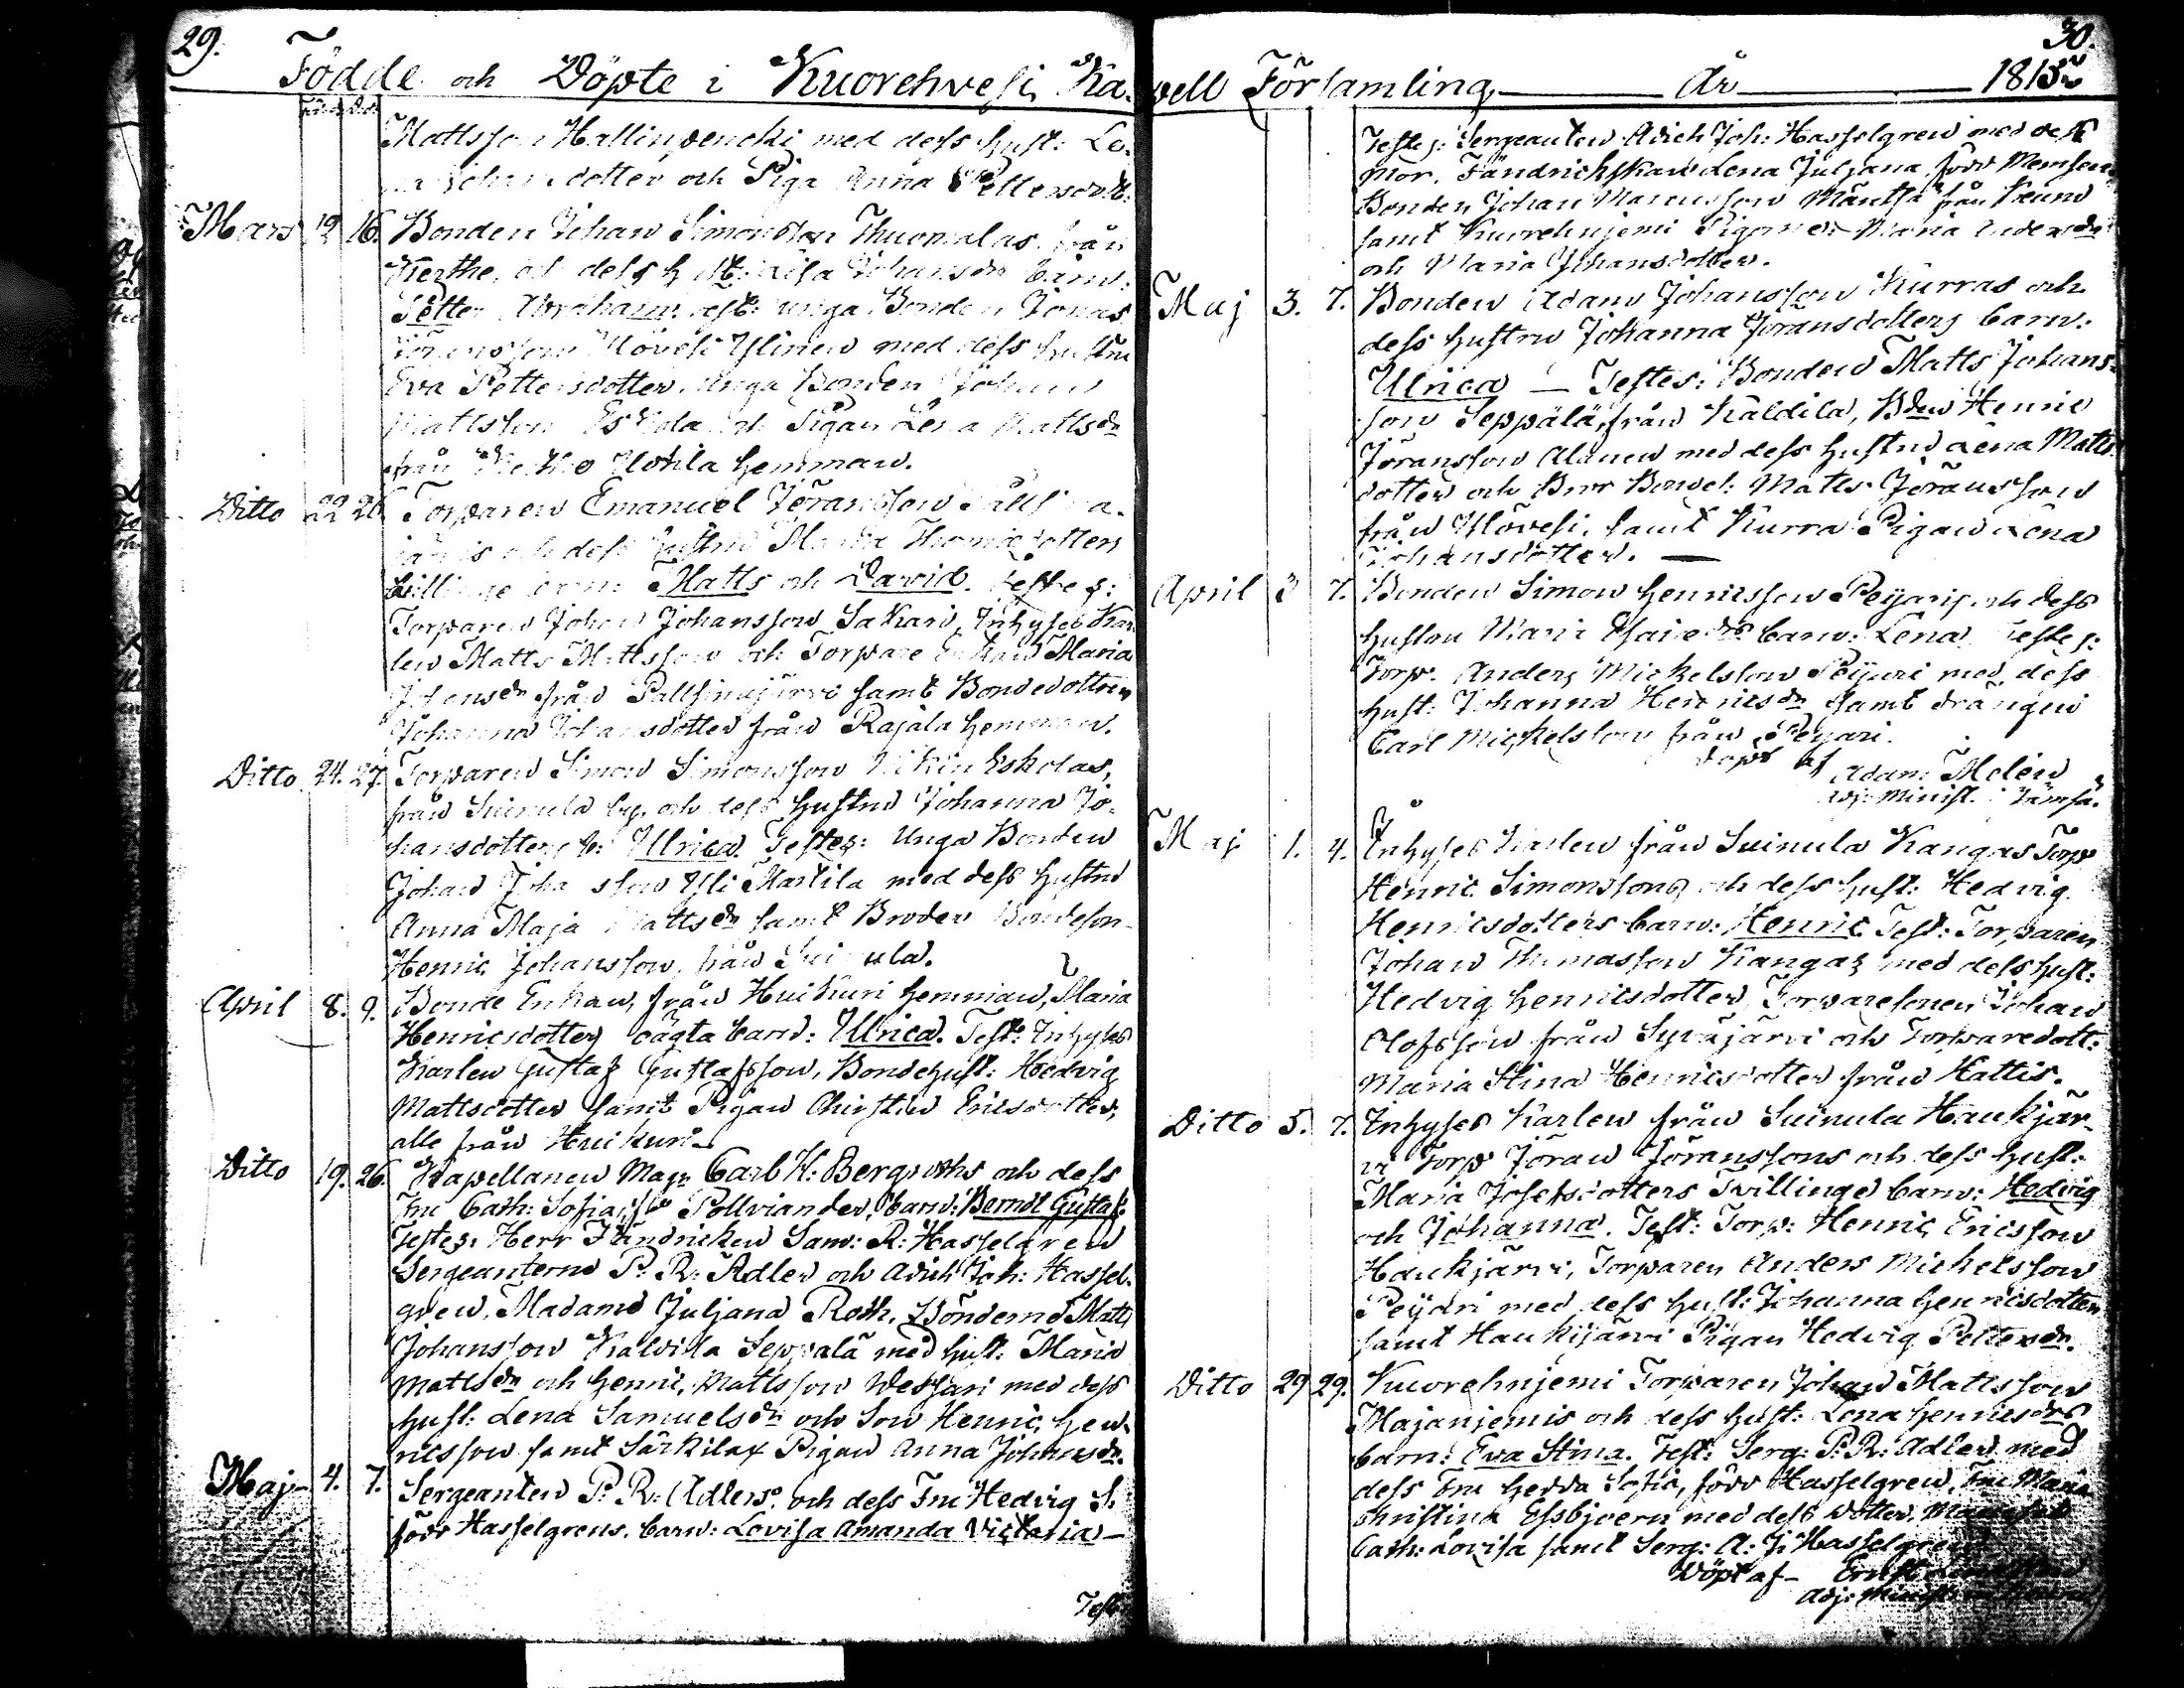 29.
Födde och Döpte i Kuorehvesi Ka-
Mattsson Hallinpencki med dess hust: Le-
na Johansdotter och Piga Anna Pettersdr.
Mars 12 16. Bonden Johan Simonsson Thuomalas från
och dess h Lisa Johansdr barn:
Petter Abraham. Test: unga Bonden Jonas
Ylövesi Ylinen med dess hustru
Eva Pettersdotter, unga Bonden Johan
Mattsson Eskola och Pigan Lena Mattsdr
från Uotila hemman.
Ditto 22 26 Torparen Emanuel Jöransson
och dess hustru Maria Thomædotters
barn: Matts och David. Testes:
Torparen Johan Johansson Sakari, Inhyses Kar-
len Matts Mattsson och Torpare Enkan Maria
från Pallsinajärvi samt Bondedottren
Johanna Johansdotter från Rajala hemman.
Ditto 24. 27. Torparen Simon Simonsson Eskolas,
från Suinula by, och dess hustru Johanna Jo-
hansdotters b: Ulrica. Testes: Unga Bonden
Johan Johansson Yli Markila med dess hustru
Anna Maja Mattsdr samt Broder Bondeson
Henric Johansson, från Suinula.
April 8. 9. Bonde Enkan, från Huikuri hemman, Maria
Henricsdotters oägta barn: Ulrica. Test: Inhyses
Karlen Gustaf Gustafsson, Bondehust: Hedvig
Mattsdotter samt Pigan Christin Ericsdotter,
alle från Huikuri
Ditto 19. 26. Kapellanen Mag: Carl H: Bergroths och dess
Fru Cath: Sofia, Pollviander, barn: Berndt Gustaf.
Testes: Herr Fändricken Sam: R: Hasselgren
Sergeanterne P: R: Adler och Adich Joh: Hassel-
gren, Madame Juljana Roth, Bönderne Matts
Johansson Kaldila Seppälä med hust: Maria
Mattsdr och Henric Mattsson Wessari med dess
hust: Lena Samuelsdr och Son Henric Hen-
ricsson samt Särkilax Pigan Anna Johansdr.
Maj 4. 7. Sergeanten P: R: Adlers och dess Fru Hedvig S:
född Hasselgrens, barn: Lovisa Amanda Victoria –
Test:
30.
pell Församling År 1815
Testes: Sergeanten Adich Joh: Hasselgren med dess
mor, Fändrickskan Lena Juljana född
Bonden Johan Mäntsä från
samt Kuorehnjemi Pigorne Maria Andersdr
och Maria Johansdotter.
Maj 3. 7. Bonden Adam Johansson Kurras och
dess hustru Johanna Jöransdotters barn:
Ulrica — Testes: Bonden Matts Johans-
son Seppälä, från Kaldila, Bden Henric
Jöransson Alanen med dess hustru Lena Matts-
dotter och Matts Jöransson
från Ylövesi, samt Kurra Pigan Lena
Johansdotter. —
April 3 7. Bonden Simon Henricsson Peyaris och dess
hustru Maria barn: Lena. Testes:
Torp. Anders Mickelsson Peyari med dess
hust: Johanna Henricsdr samt drängen
Carl Mickelsson från Peyari.
döpt af Adam Molén
Adj: Minist. i Jämsä.
Maj 1. 4. Inhyses Karlen från Suinula Kangas Torp
Henric Simonssons och dess hust: Hedvig
Henricsdotters barn: Henric Test: Torparen
Johan Thomasson Kangas med dess hust:
Hedvig Henricsdotter, Torparesonen Johan
Olofsson från Syväjärvi och Torparedott:
Maria Stina Henricsdotter från Hattis.
Ditto 5. 7. Inhyses Karlen från Suinula Haukjär-
vi Torp Jöran Jöranssons och dess hust:
Maria Josefsdotters Tvillinge barn: Hedvig
och Johanna. Test: Torp: Henric Ericsson
Haukjärvi, Torparen Anders Mickelsson
Peyari med dess hust: Johanna Henricsdotter
samt Haukijärvi Pigan Hedvig Pettersdr.
Ditto 29 29. Kuorehnjemi Torparen Johan Mattsson
Majanjemis och dess hust: Lena Henricsdrs
barn: Eva Stina. Test: Serg: P: R: Adler med
dess Fru Hedda Sofia, född Hasselgren, Fru Maria
Christina Essbjoern med dess dotter,
Cath: Lovisa samt Serg: A: J: Hasselgren
Döpt af
Adj: